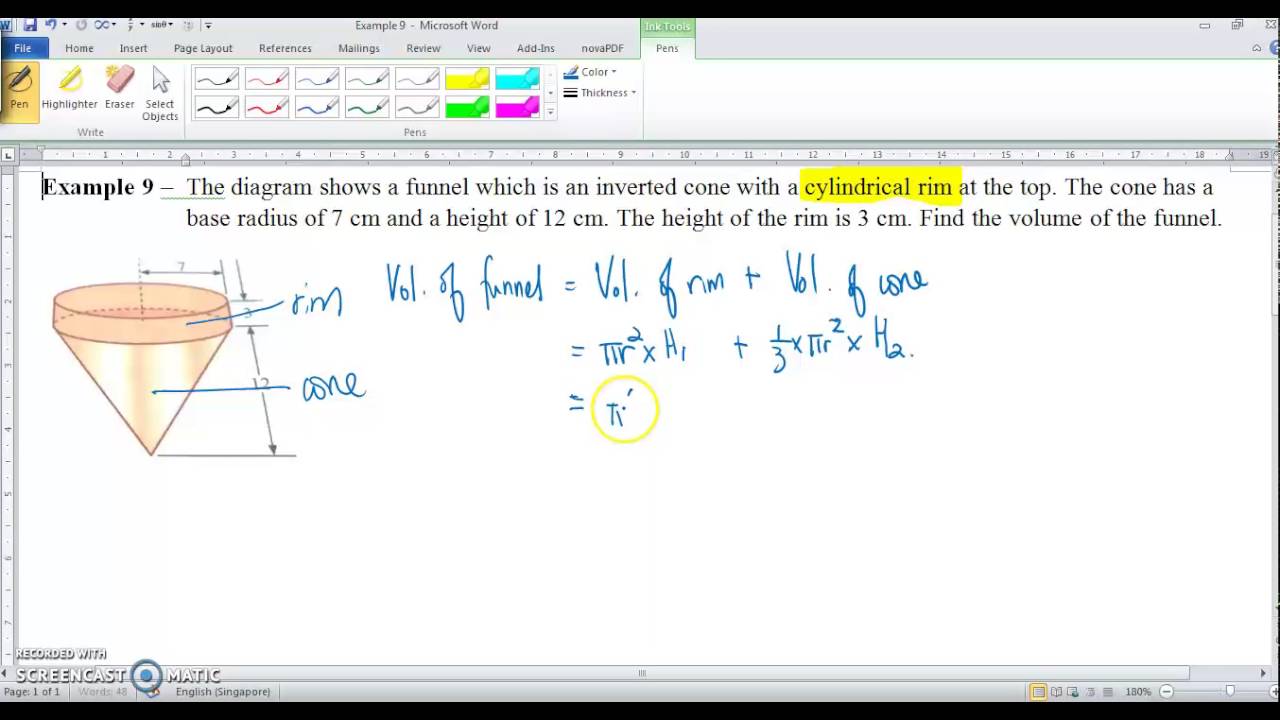 Example 9 - Microsoft Word
Ink Tools
File Home Insert Page Layout References Mailings Review View Add-Ins novaPDF Pens
Pen Highlighter Eraser Select Objects
Color
Thickness
Write Pens
1 1 2 3 4 5 6 7 8 9 10 11 12 13 14 15 16 17 18 19
Example 9 – The diagram shows a funnel which is an inverted cone with a cylindrical rim at the top. The cone has a
base radius of 7 cm and a height of 12 cm. The height of the rim is 3 cm. Find the volume of the funnel.
7
3
rim
12
cone
Vol. of funnel = Vol. of rim + Vol. of cone
= πr² × H₁ + 1/3 × πr² × H₂.
= π
RECORDED WITH
SCREENCAST MATIC
Page: 1 of 1 Words: 48 English (Singapore) 180%